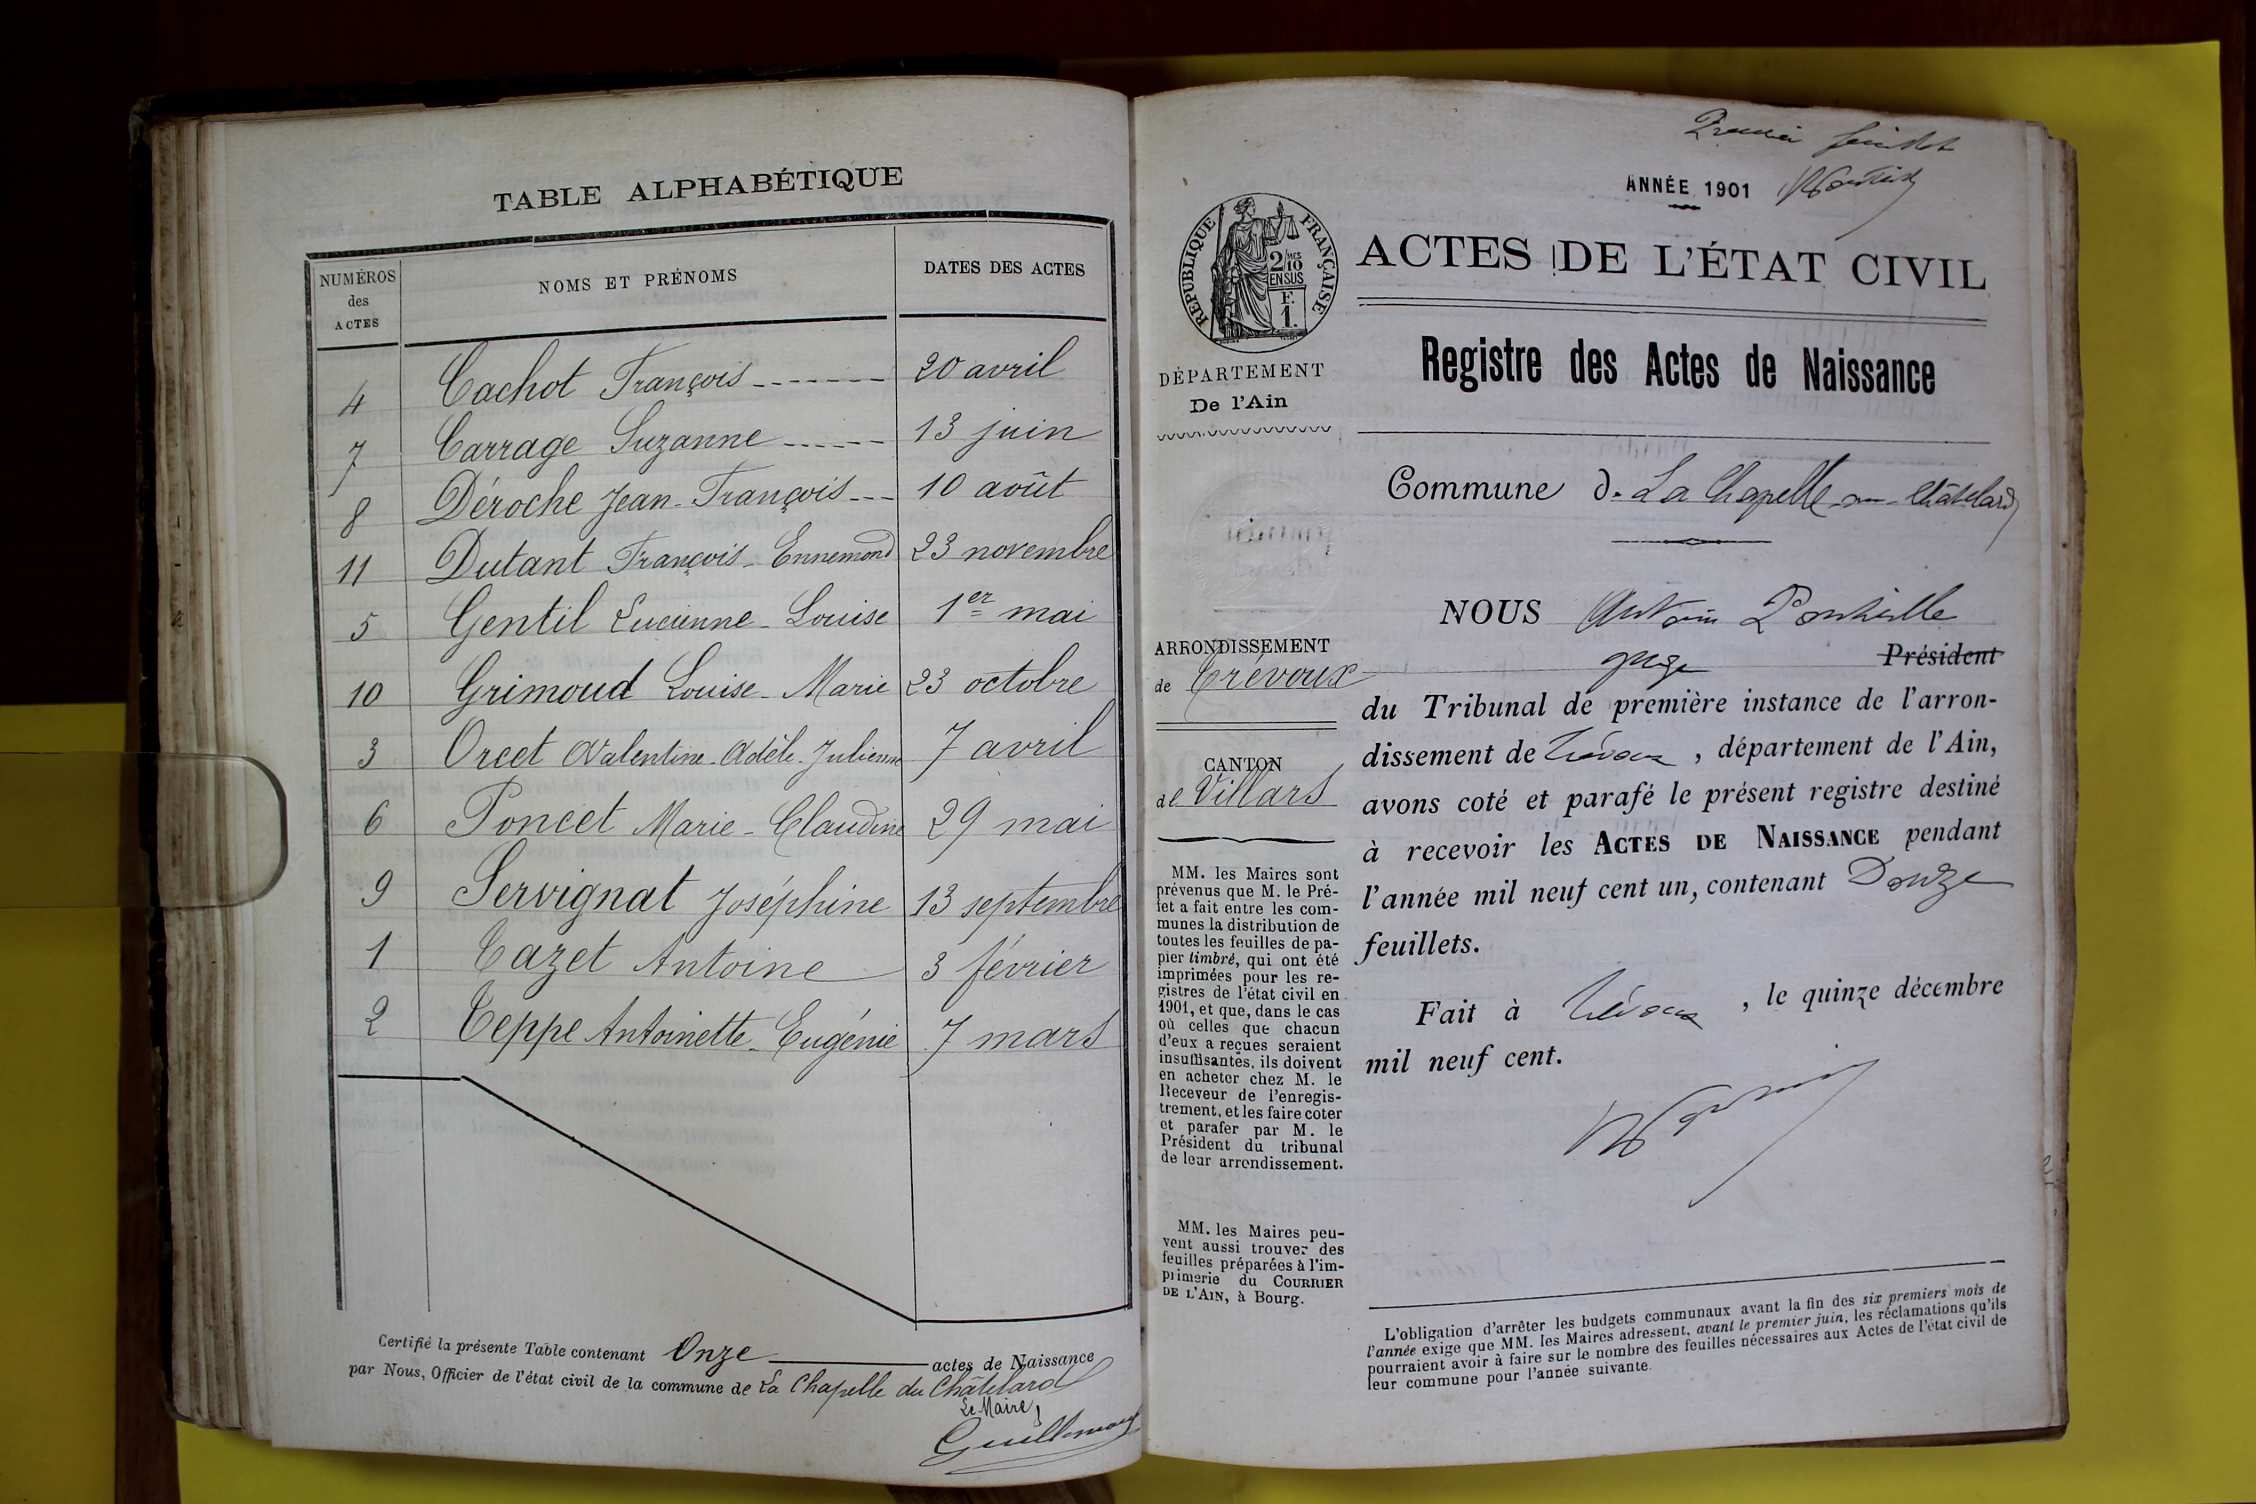 TABLE ALPHABÉTIQUE
NUMÉROS des ACTES
NOMS ET PRÉNOMS
DATES DES ACTES
4 Cachot François 20 avril
7 Carrage Suzanne 13 juin
8 Déroche Jean-François 10 août
11 Dutant François-Ennemond 23 novembre
5 Gentil Lucienne-Louise 1er mai
10 Grimoud Louise-Marie 23 octobre
3 Orcet Valentine-Adèle-Julienne 7 avril
6 Poncet Marie-Claudine 29 mai
9 Servignat Joséphine 13 septembre
1 Tazet Antoine 3 février
2 Teppe Antoinette-Eugénie 7 mars
Certifié la présente Table contenant Onze actes de Naissance
par Nous, Officier de l'état civil de la commune de La Chapelle du Châtelard
Le Maire,
Premier feuillet
ANNÉE 1901
RÉPUBLIQUE FRANÇAISE
2/10
EN SUS
F.
1.
ACTES DE L'ÉTAT CIVIL
Registre des Actes de Naissance
DÉPARTEMENT
De l'Ain
Commune d. La Chapelle-du-Châtelard
ARRONDISSEMENT
de Trévoux
CANTON
de Villars
MM. les Maires sont
prévenus que M. le Pré-
fet a fait entre les com-
munes la distribution de
toutes les feuilles de pa-
pier timbré, qui ont été
imprimées pour les re-
gistres de l'état civil en
1901, et que, dans le cas
où celles que chacun
d'eux a reçues seraient
insuffisantes, ils doivent
en acheter chez M. le
Receveur de l'enregis-
trement, et les faire coter
et parafer par M. le
Président du tribunal
de leur arrondissement.
MM. les Maires peu-
vent aussi trouver des
feuilles préparées à l'im-
primerie du COURRIER
DE L'AIN, à Bourg.
NOUS Antoine
juge Président
du Tribunal de première instance de l'arron-
dissement de Trévoux, département de l'Ain,
avons coté et parafé le présent registre destiné
à recevoir les ACTES DE NAISSANCE pendant
l'année mil neuf cent un, contenant Douze
feuillets.
Fait à Trévoux, le quinze décembre
mil neuf cent.
L'obligation d'arrêter les budgets communaux avant la fin des six premiers mois de
l'année exige que MM. les Maires adressent, avant le premier juin, les réclamations qu'ils
pourraient avoir à faire sur le nombre des feuilles nécessaires aux Actes de l'état civil de
leur commune pour l'année suivante.